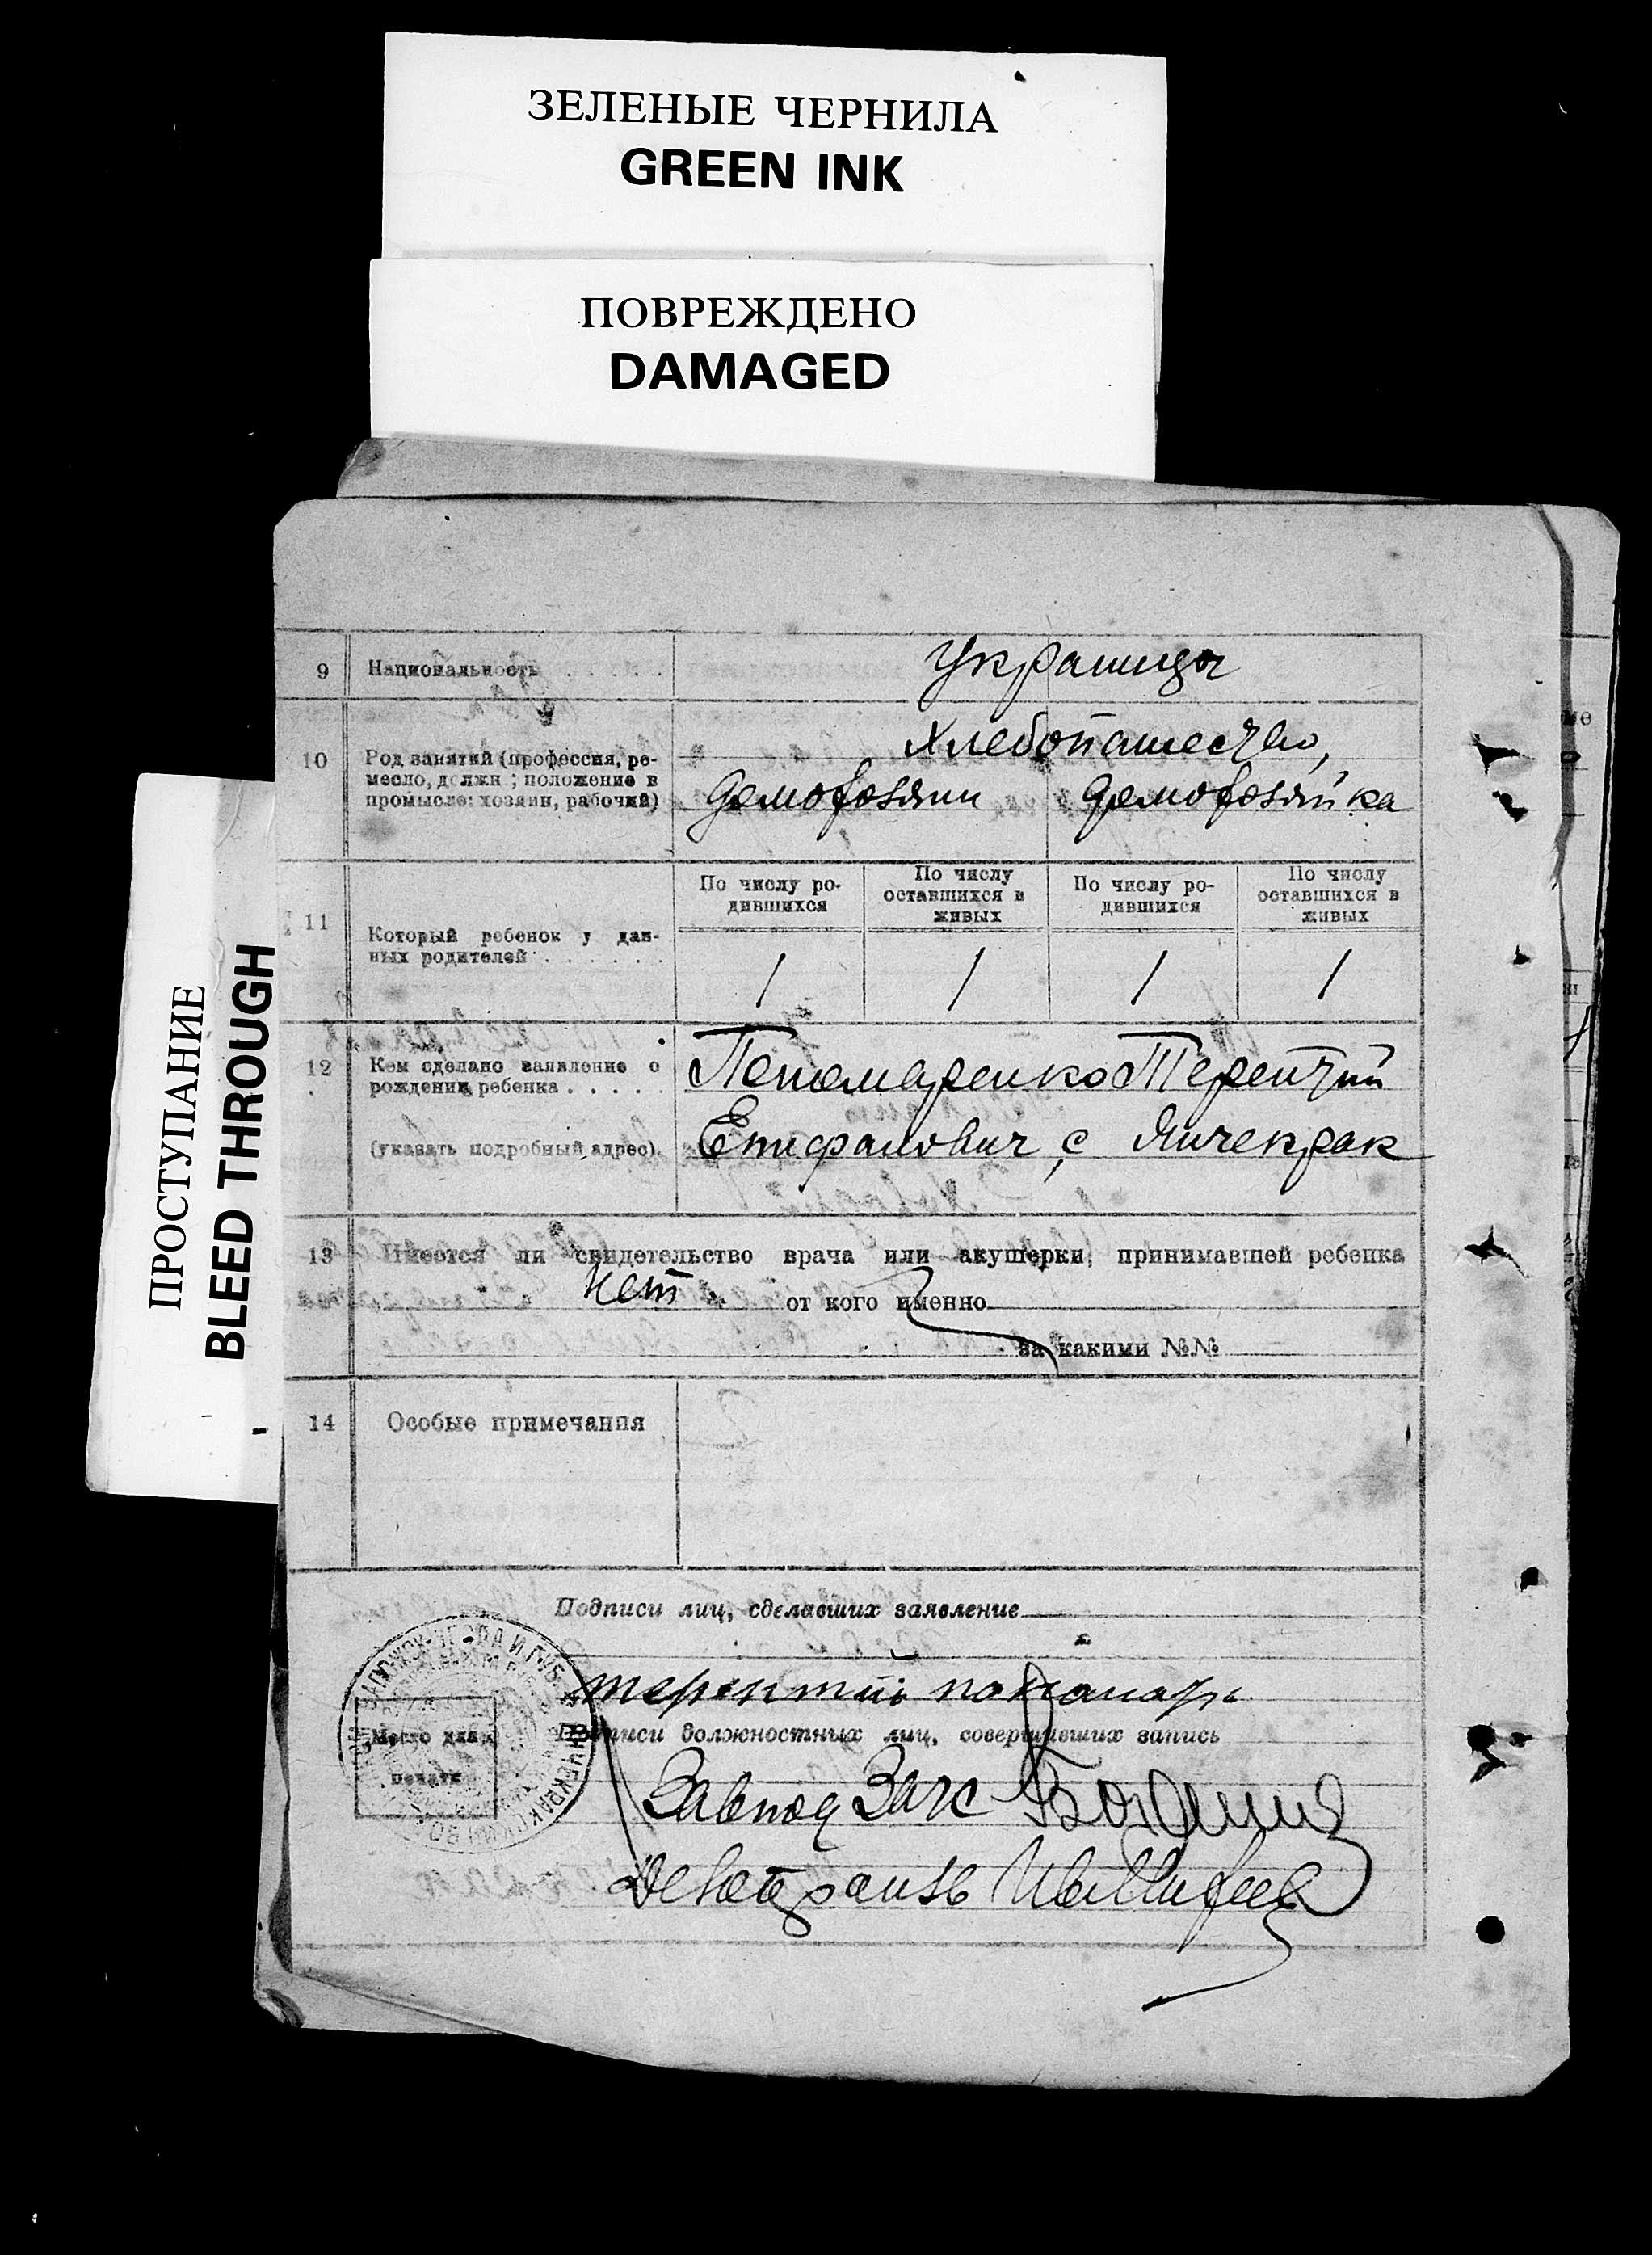 ЗЕЛЕНЫЕ ЧЕРНИЛА
GREEN INK
ПОВРЕЖДЕНО
DAMAGED
ПРОСТУПАНИЕ
BLEED THROUGH
9 Национальность . . . . . . Украинцы
10 Род занятий (профессия, ре-
месло, должн; положение в
промысле: хозяин, рабочий)
Хлебопашество,
домохозяин домохозяйка
11 Который ребенок у дан-
ных родителей . . . . . .
По числу ро-
дившихся
По числу
оставшихся в
живых
По числу ро-
дившихся
По числу
оставшихся в
живых
1 1 1 1
12 Кем сделано заявление о
рождении ребенка . . . . .
(указать подробный адрес).
Пономаренко Терентий
Епифанович, с Янчекрак
13 Имеется ли свидетельство врача или акушерки, принимавшей ребенка
нет от кого именно
за какими №№
14 Особые примечания
Подписи лиц, сделавших заявление
терентий понамарь
Подписи должностных лиц, совершивших запись
Место для
печати
Завпод Загс